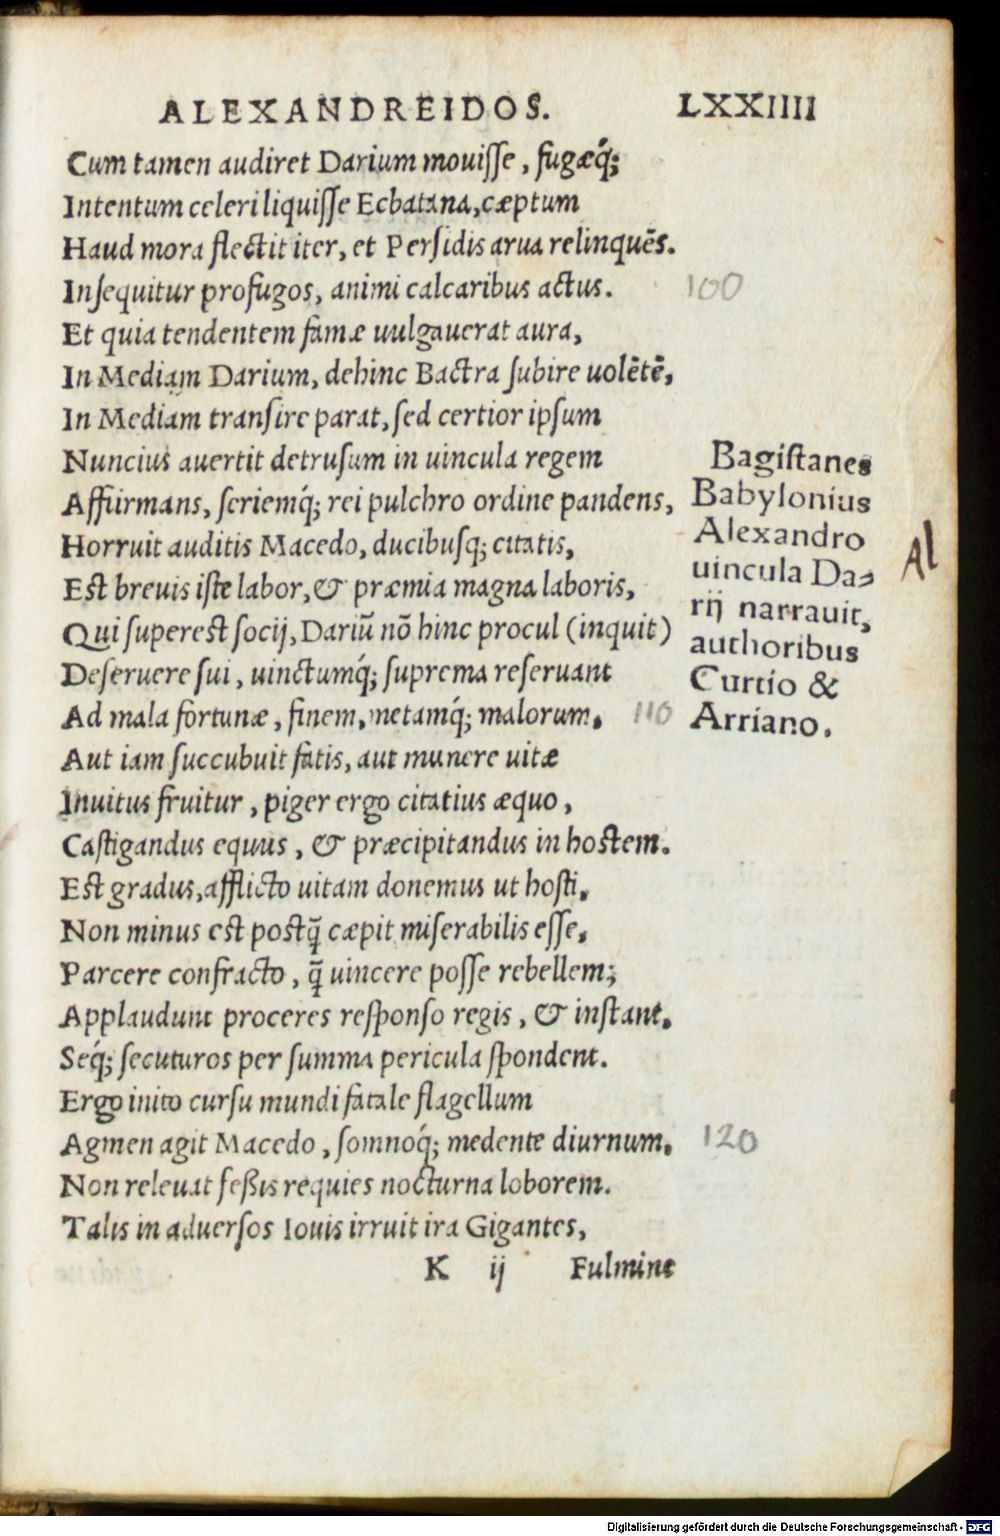 ALEXANDREIDOS. LXXIIII
Cum tamen audiret Darium mouisse, fugæq́;
Intentum celeri liquisse Ecbatana, cæptum
Haud mora flectit iter, et Persidis arua relinquēs.
Insequitur profugos, animi calcaribus actus. 100
Et quia tendentem famæ uulgauerat aura,
In Mediam Darium, dehinc Bactra subire uolētē,
In Mediam transire parat, sed certior ipsum
Nuncius auertit detrusum in uincula regem
Affirmans, seriemq́; rei pulchro ordine pandens,
Horruit auditis Macedo, ducibusq; citatis,
Est breuis iste labor, & præmia magna laboris,
Qui superest socij, Dariū nō hinc procul (inquit)
Deseruere sui, uinctumq́; suprema reseruant
Ad mala fortunæ, finem, metamq́; malorum. 110
Aut iam succubuit fatis, aut munere uitæ
Inuitus fruitur, piger ergo citatius æquo,
Castigandus equus, & præcipitandus in hostem.
Est gradus, afflicto uitam donemus ut hosti,
Non minus est postq̄ cæpit miserabilis esse,
Parcere confracto, q̄ uincere posse rebellem;
Applaudunt proceres responso regis, & instant.
Seq́; secuturos per summa pericula spondent.
Ergo inito cursu mundi fatale flagellum
Agmen agit Macedo, somnoq́; medente diurnum. 120
Non releuat feßis requies nocturna loborem.
Talis in aduersos Iouis irruit ira Gigantes,
K ij Fulmine
Bagistanes
Babylonius
Alexandro
uincula Da-
rij narrauit,
authoribus
Curtio &
Arriano.
Al
Digitalisierung gefördert durch die Deutsche Forschungsgemeinschaft - DFG